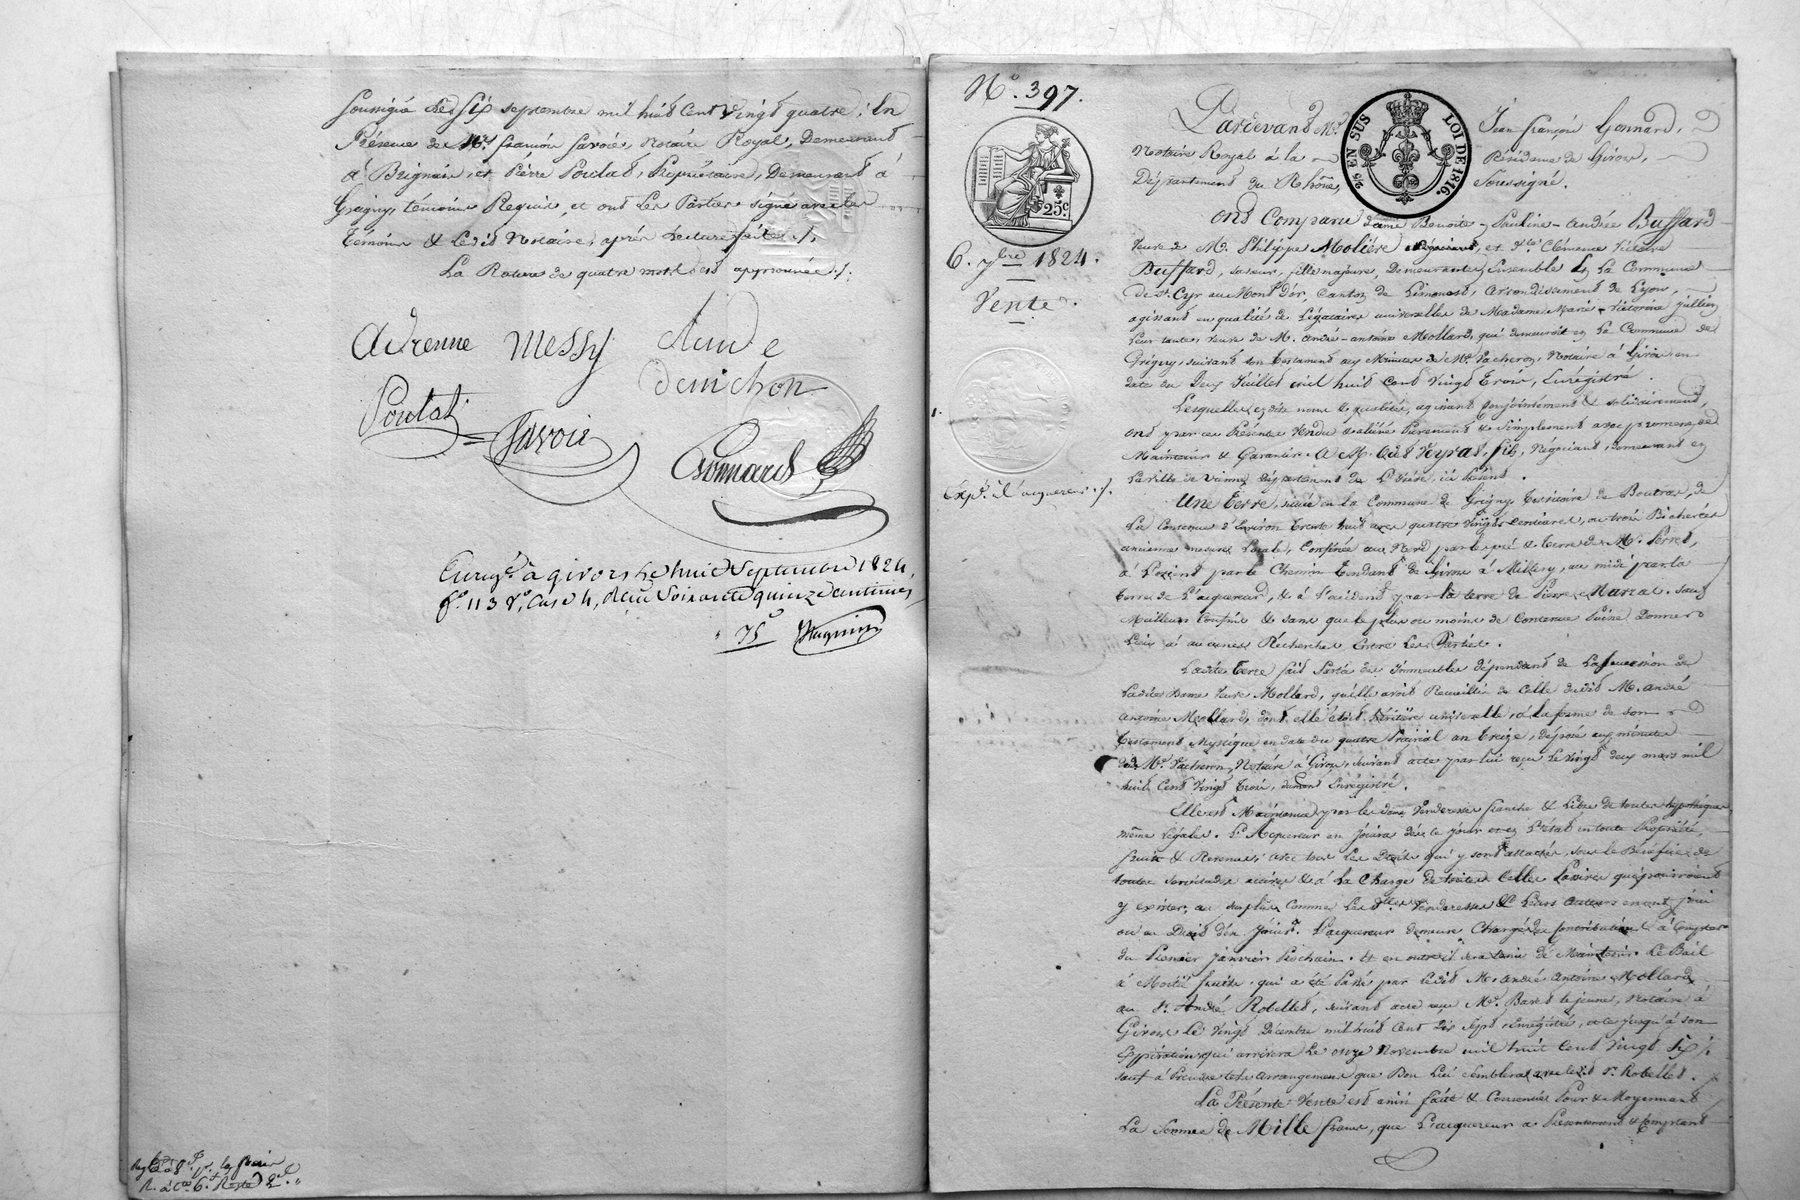 soussigné le Six septembre mil huit Cent Vingt quatre, En
Présence de Me. françois Savoie, Notaire Royal, Demeurant
à Brignais, et Pierre Poulat, Propriétaire, Demeurant à
Grigny, témoins Requis, et ont les Parties signé avec les
témoins & Ledit Notaire, après Lecture faite ./.
La Rature de quatre mots est approuvée ./.
Adrenne Messy
Poulat
Savoie
denichon
Gonnard
Enregé. à givors le huit Septembre 1824,
fo. 113 Vo. Case 4, Reçu Soixante quinze Centimes
75c
No. 397.
25c
EN SUS LOI DE 1816.
6. 7bre 1824.
Vente.
Expn. à l'acquereur ./.
Pardevant Me. Jean françois Gonnard,
Notaire Royal à la Résidence de Givors,
Département du Rhône, Soussigné.
Ont Comparu dame Benoite-Pauline-Andrée Buffard
Veuve de Mr. Philippe Molière négociant, et Dlle. Clémence Victoire
Buffard, sa sœur, fille majeure, Demeurantes Ensemble en La Commune
de St. Cyr au Mont d'or, Canton de Limonest, Arrondissement de Lyon,
agissant en qualité de Légataires universelles de Madame Marie-Victoire Jullien
Leur tante, Veuve de M. André-antoine Mollard, qui demeuroit en La Commune de
Grigny, suivant son testament aux Minutes de Me. Vacheron, Notaire à Givors en
date du Deux Juillet mil huit Cent Vingt Trois, Enregistré.
Lesquelles en dits noms & qualités, agissant Conjointement & solidairement,
ont par ces Présentes Vendu & aliéné Purement & Simplement avec promesse de
Maintenir & Garantir à M. Veyrat, fils, Négociant, demeurant en
La Ville de Vienne, Département de L'Isère, ici Présent.
Une Terre, située en La Commune de Grigny, Territoire de Boutras, de
La Contenue d'Environ Trente huit ares quatre Vingts Centiares, ou trois Bicherées
ancienne mesure Locale, Confinée au Nord par le pré & terre de M. Perret,
à L'orient par le Chemin Tendant de Givors à Millery, au midi par la
terre de L'acquereur, & à L'occident par la terre de Pierre Marcel. sauf
Meilleurs Confins & sans que le plus ou moins de Contenue Puisse Donner
Lieu à aucunes Recherches Entre Les Parties.
Ladite Terre fait Partie des immeubles dépendant de La succession de
Ladite Dame Veuve Mollard, qu'elle avoit Recueillie de Celle dudit M. André
Antoine Mollard, dont elle étoit héritière universelle, à la forme de son
Testament Mystique en date du quatre Prairial an Treize, déposé aux minutes
de Me. Vacheron, Notaire à Givors, suivant acte par lui reçu Le Vingt deux mars mil
huit Cent Vingt Trois, dument Enregistré.
Elle est Maintenue par les dames Venderesses franche & Libre de toutes hypothèques
même légales. L'Acquereur en Jouira dès ce jour et en L'état en toute Propriété,
fruits & Revenus, avec tous Les Droits qui y sont attachés, sous le Bénéfice de
toutes servitudes actives & à La Charge de toutes Celles Passives qui pourroient
y exister, au surplus Comme Lesd. Venderesses & Leurs Auteurs en ont joui
ou eu Droit d'en Jouir. L'acquereur demeure Chargé des Contributions à Compter
du Premier janvier Prochain. Et en outre il sera tenu de Maintenir Le Bail
à Moitié fruits qui a été Passé par Ledit M. André Antoine Mollard
au Sr. André Robellet, suivant acte reçu Me. Baret le jeune, Notaire à
Givors, Le Vingt Décembre mil huit Cent Dix Sept, Enregistré, et ce jusqu'à son
Expiration qui arrivera Le onze Novembre mil huit Cent Vingt Six
sauf à Prendre tels arrangements que Bon Lui Semblera avec led. Sr. Robellet.
La Présente Vente est ainsi faite & Consentie Pour & Moyennant
La Somme de Mille francs, que L'acquereur a Présentement & Comptant